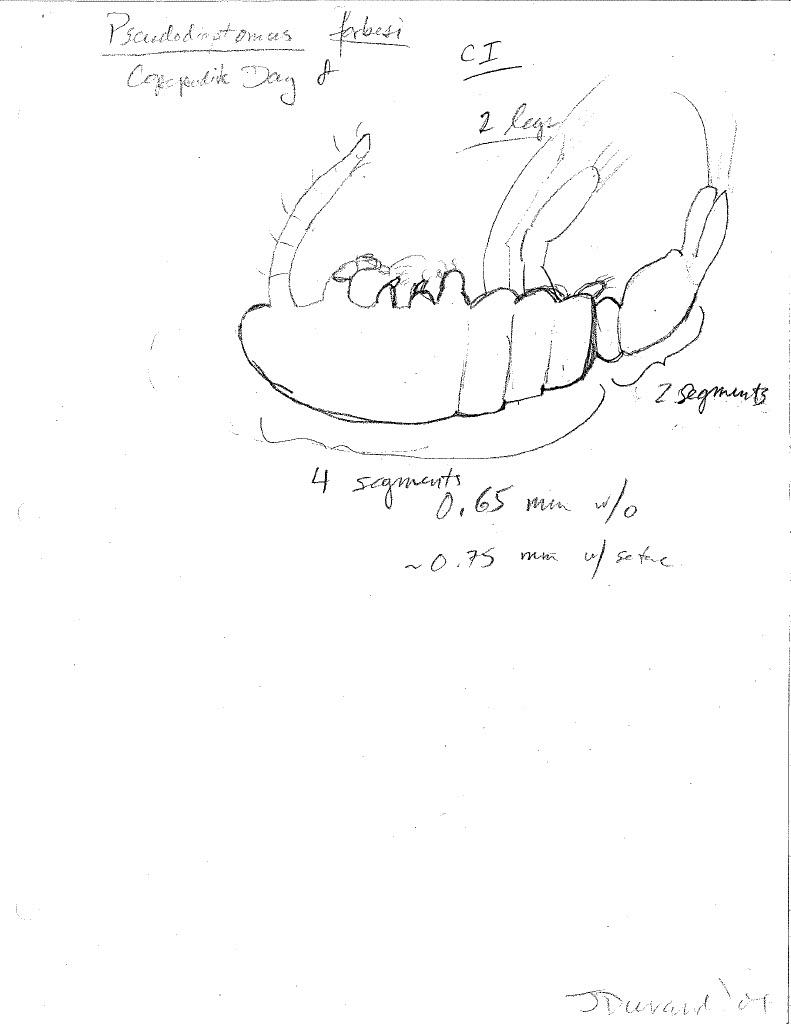 Pseudodiaptomus forbesi
Copepodite Day
CI
2 legs
2 segments
4 segments
0.65 mm w/o
~0.75 mm w/ setae
JDurand